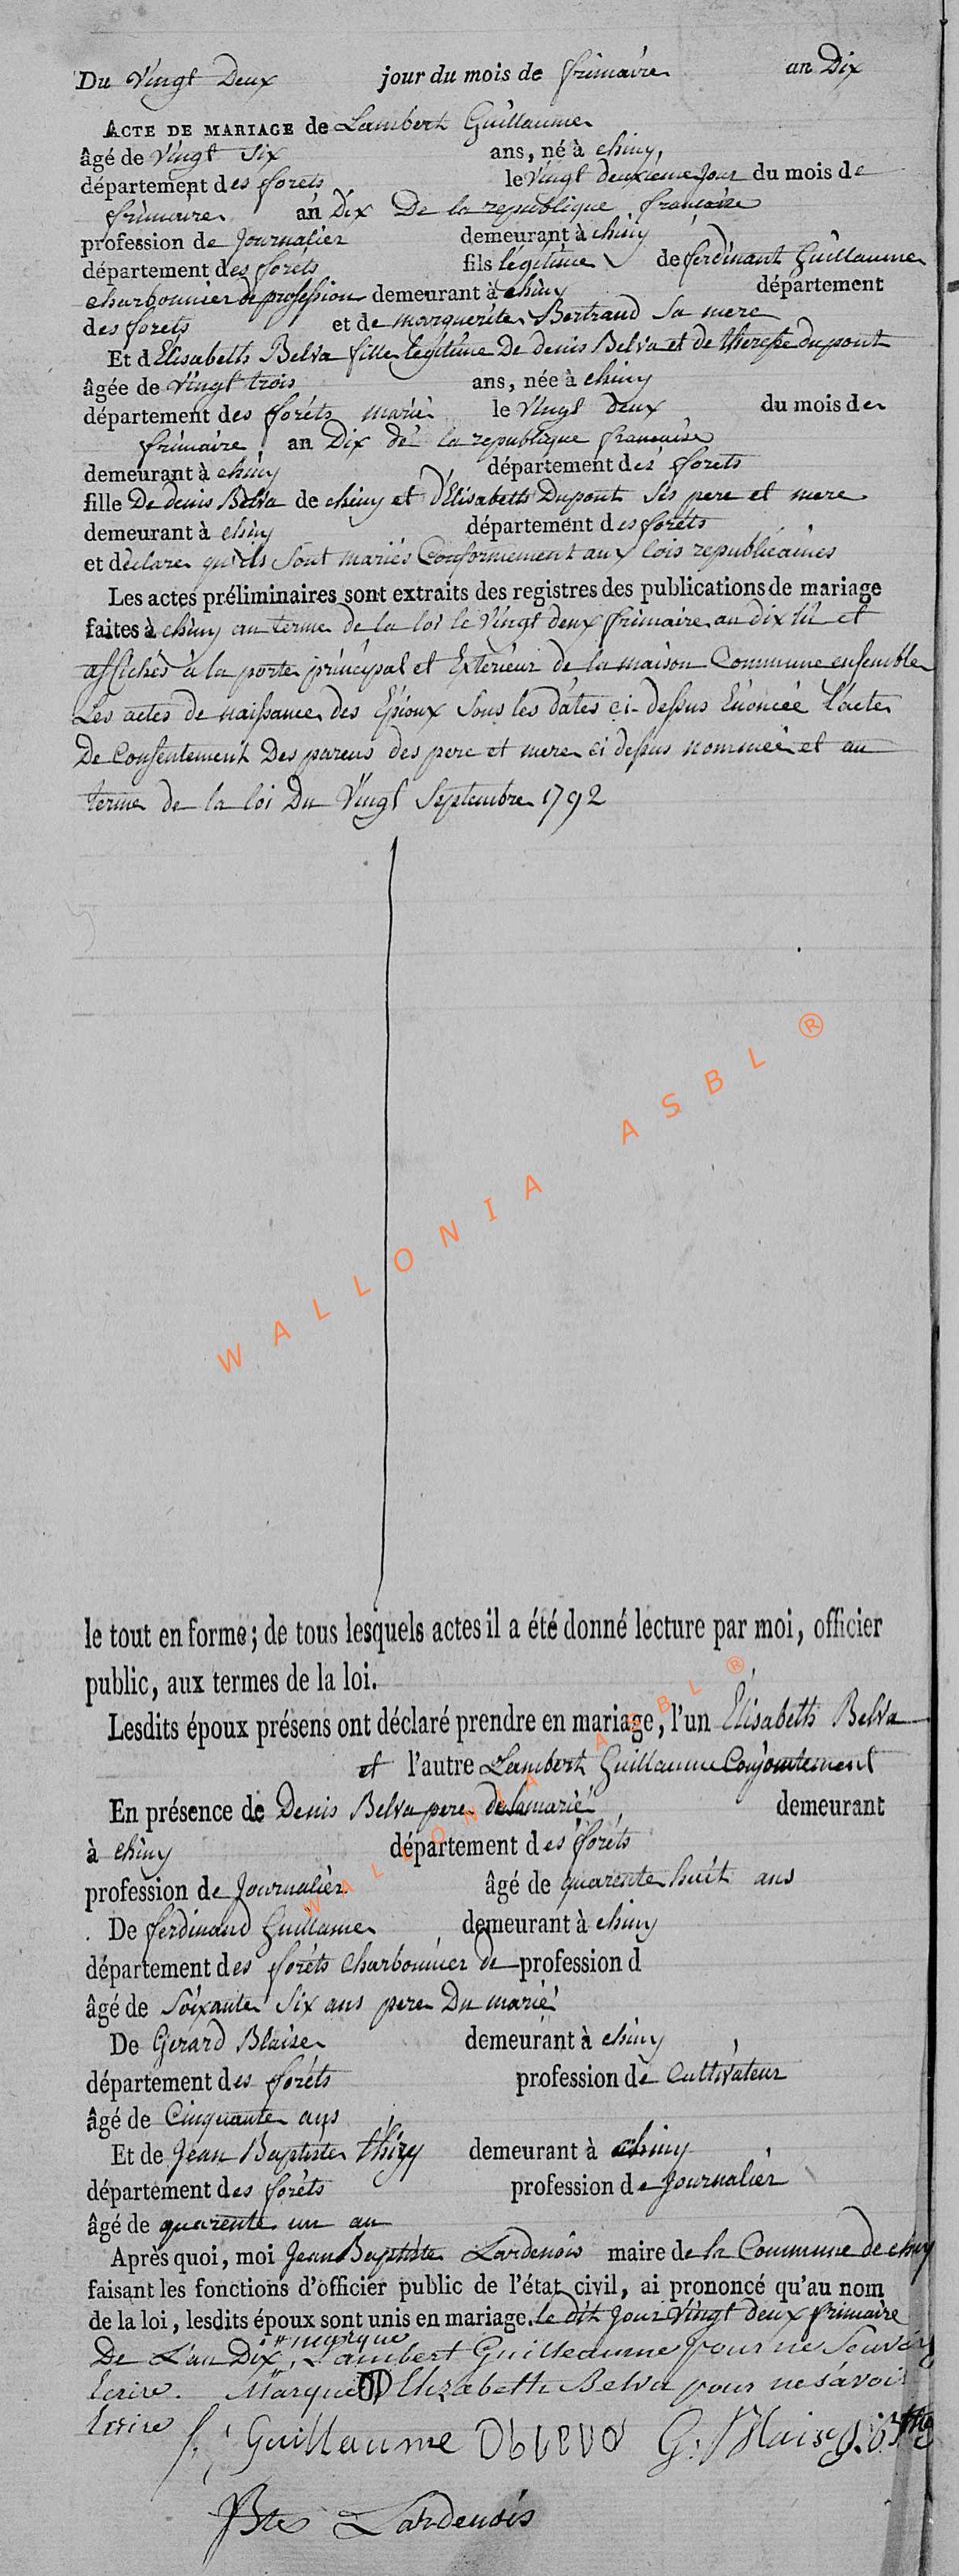 Du Vingt Deux jour du mois de frimaire an Dix
ACTE DE MARIAGE de Lambert Guillaume
âgé de Vingt Six ans, né à chiny,
département des forets le Vingt deuxieme jour du mois de
frimaire an Dix De la republique francaise
profession de Journalier demeurant à chiny
département des foréts fils légitime de ferdinant Guillaume
charbonnier de profession demeurant à chiny département
des forets et de marguerite Bertrand Sa mere
Et d'Elisabeth Belva fille legitime De denis Belva et de therese dupont
âgée de Vingt trois ans, née à chiny
département des foréts marié le Vingt deux du mois de
frimaire an Dix de la republique francaise
demeurant à chiny département des forets
fille De denis Belva de chiny et d'Elisabeth Dupont Ses pere et mere
demeurant à chiny département des foréts
et déclare qu'ils Sont mariés Conformement aux lois republicaines
Les actes préliminaires sont extraits des registres des publications de mariage
faites à chiny au terme de la loi le Vingt deux frimaire an dix lu et
affichés à la porte principal et Exterieur de la maison Commune ensemble
Les actes de naissance des Epioux Sous les dates ci-dessus Enoncée l'acte
De Consentement Des parens des pere et mere ci dessus nommée et au
terme de la loi Du Vingt Septembre 1792
WALLONIA ASBL ®
le tout en forme; de tous lesquels actes il a été donné lecture par moi, officier
public, aux termes de la loi.
Lesdits époux présens ont déclaré prendre en mariage, l'un Elisabeth Belva
et l'autre Lambert Guillaume Conjointement
En présence de Denis Belva pere de la marié demeurant
à chiny département des foréts
profession de Journalier âgé de quarente huit ans
De ferdinand Guillame demeurant à chiny
département des foréts Charbonnier de profession d
âgé de Soixante Six ans pere Du marié
De Gerard Blaise demeurant à chiny
département des foréts profession de Cultivateur
âgé de Cinquante ans
Et de Jean Baptiste thiry demeurant à chiny
département des foréts profession de Journalier
âgé de quarente un an
Après quoi, moi Jean Baptiste Lardenois maire de la Commune de chiny
faisant les fonctions d'officier public de l'état civil, ai prononcé qu'au nom
de la loi, lesdits époux sont unis en mariage. le dit Jour Vingt deux frimaire
De L'an Dix, marque Lambert Guilleaume pour ne Scavoir
Ecrire. Marque Elizabeth Belva pour ne savoir
Ecrire f. Guillaume G. Blaise
JBte Lardenois
WALLONIA ASBL ®